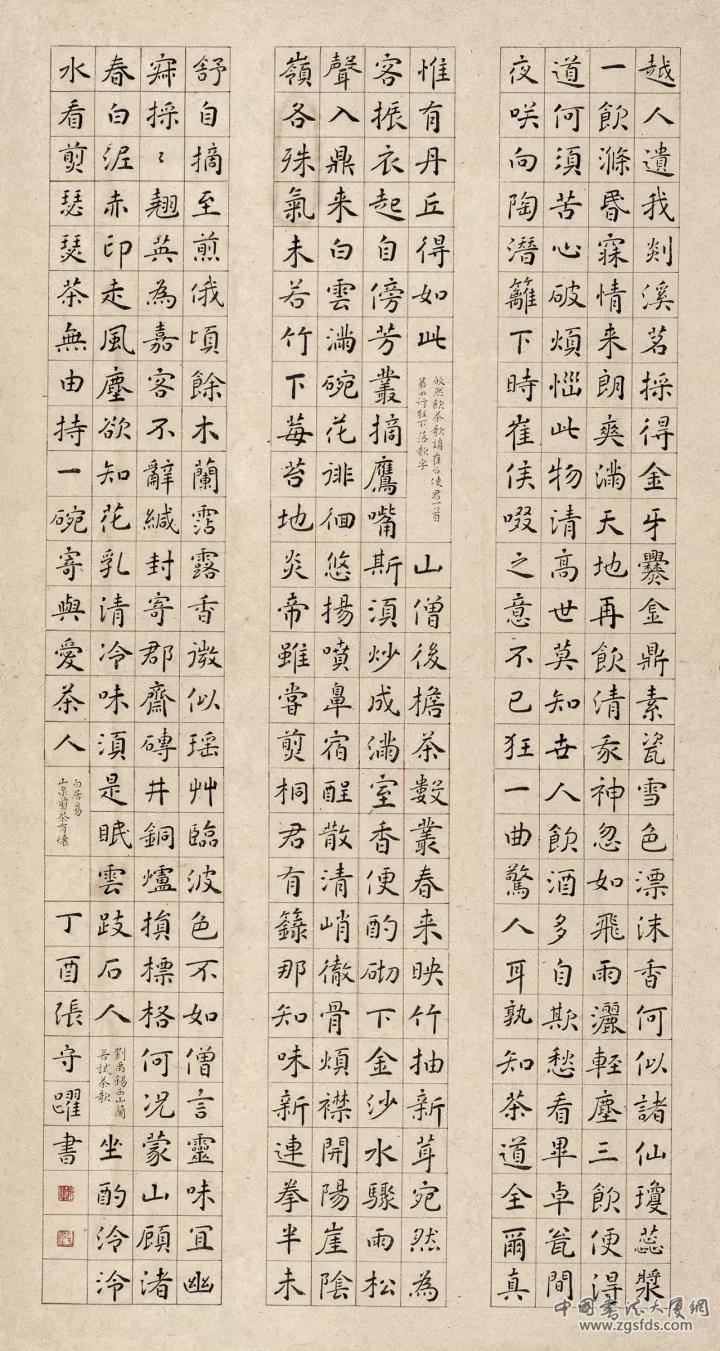 越人遺我剡溪茗採得金牙爨金鼎素瓷雪色漂沫香何似諸仙瓊蕊漿
一飲滌昬寐情来朗爽滿天地再飲清我神忽如飛雨灑輕塵三飲便得
道何須苦心破煩惱此物清高世莫知世人飲酒多自欺愁看畢卓瓮間
夜咲向陶潛籬下時崔侯啜之意不已狂一曲驚人耳孰知茶道全爾真
惟有丹丘得如此
皎然飲茶歌誚崔石使君一首
第四行狂下落歌字
山僧後檐茶數叢春来映竹抽新茸宛然為
客振衣起自傍芳叢摘鷹嘴斯須炒成滿室香便酌砌下金沙水驟雨松
聲入鼎来白雲滿碗花徘徊悠揚噴鼻宿酲散清峭徹骨煩襟開陽崖陰
嶺各殊氣未若竹下莓苔地炎帝雖嘗剪桐君有籙那知味新連拳半未
舒自摘至煎俄頃餘木蘭霑露香微似瑤艸臨波色不如僧言靈味宜幽
寂採〻翹英為嘉客不辭緘封寄郡齋磚井銅爐損標格何況蒙山顧渚
春白泥赤印走風塵欲知花乳清冷味須是眠雲跂石人
劉禹錫西山蘭
若試茶歌
坐酌泠泠
水看剪瑟瑟茶無由持一碗寄與愛茶人
白居易
山泉煎茶有懷
丁酉張守躍書
中国书法大厦網
www.zgsfds.com